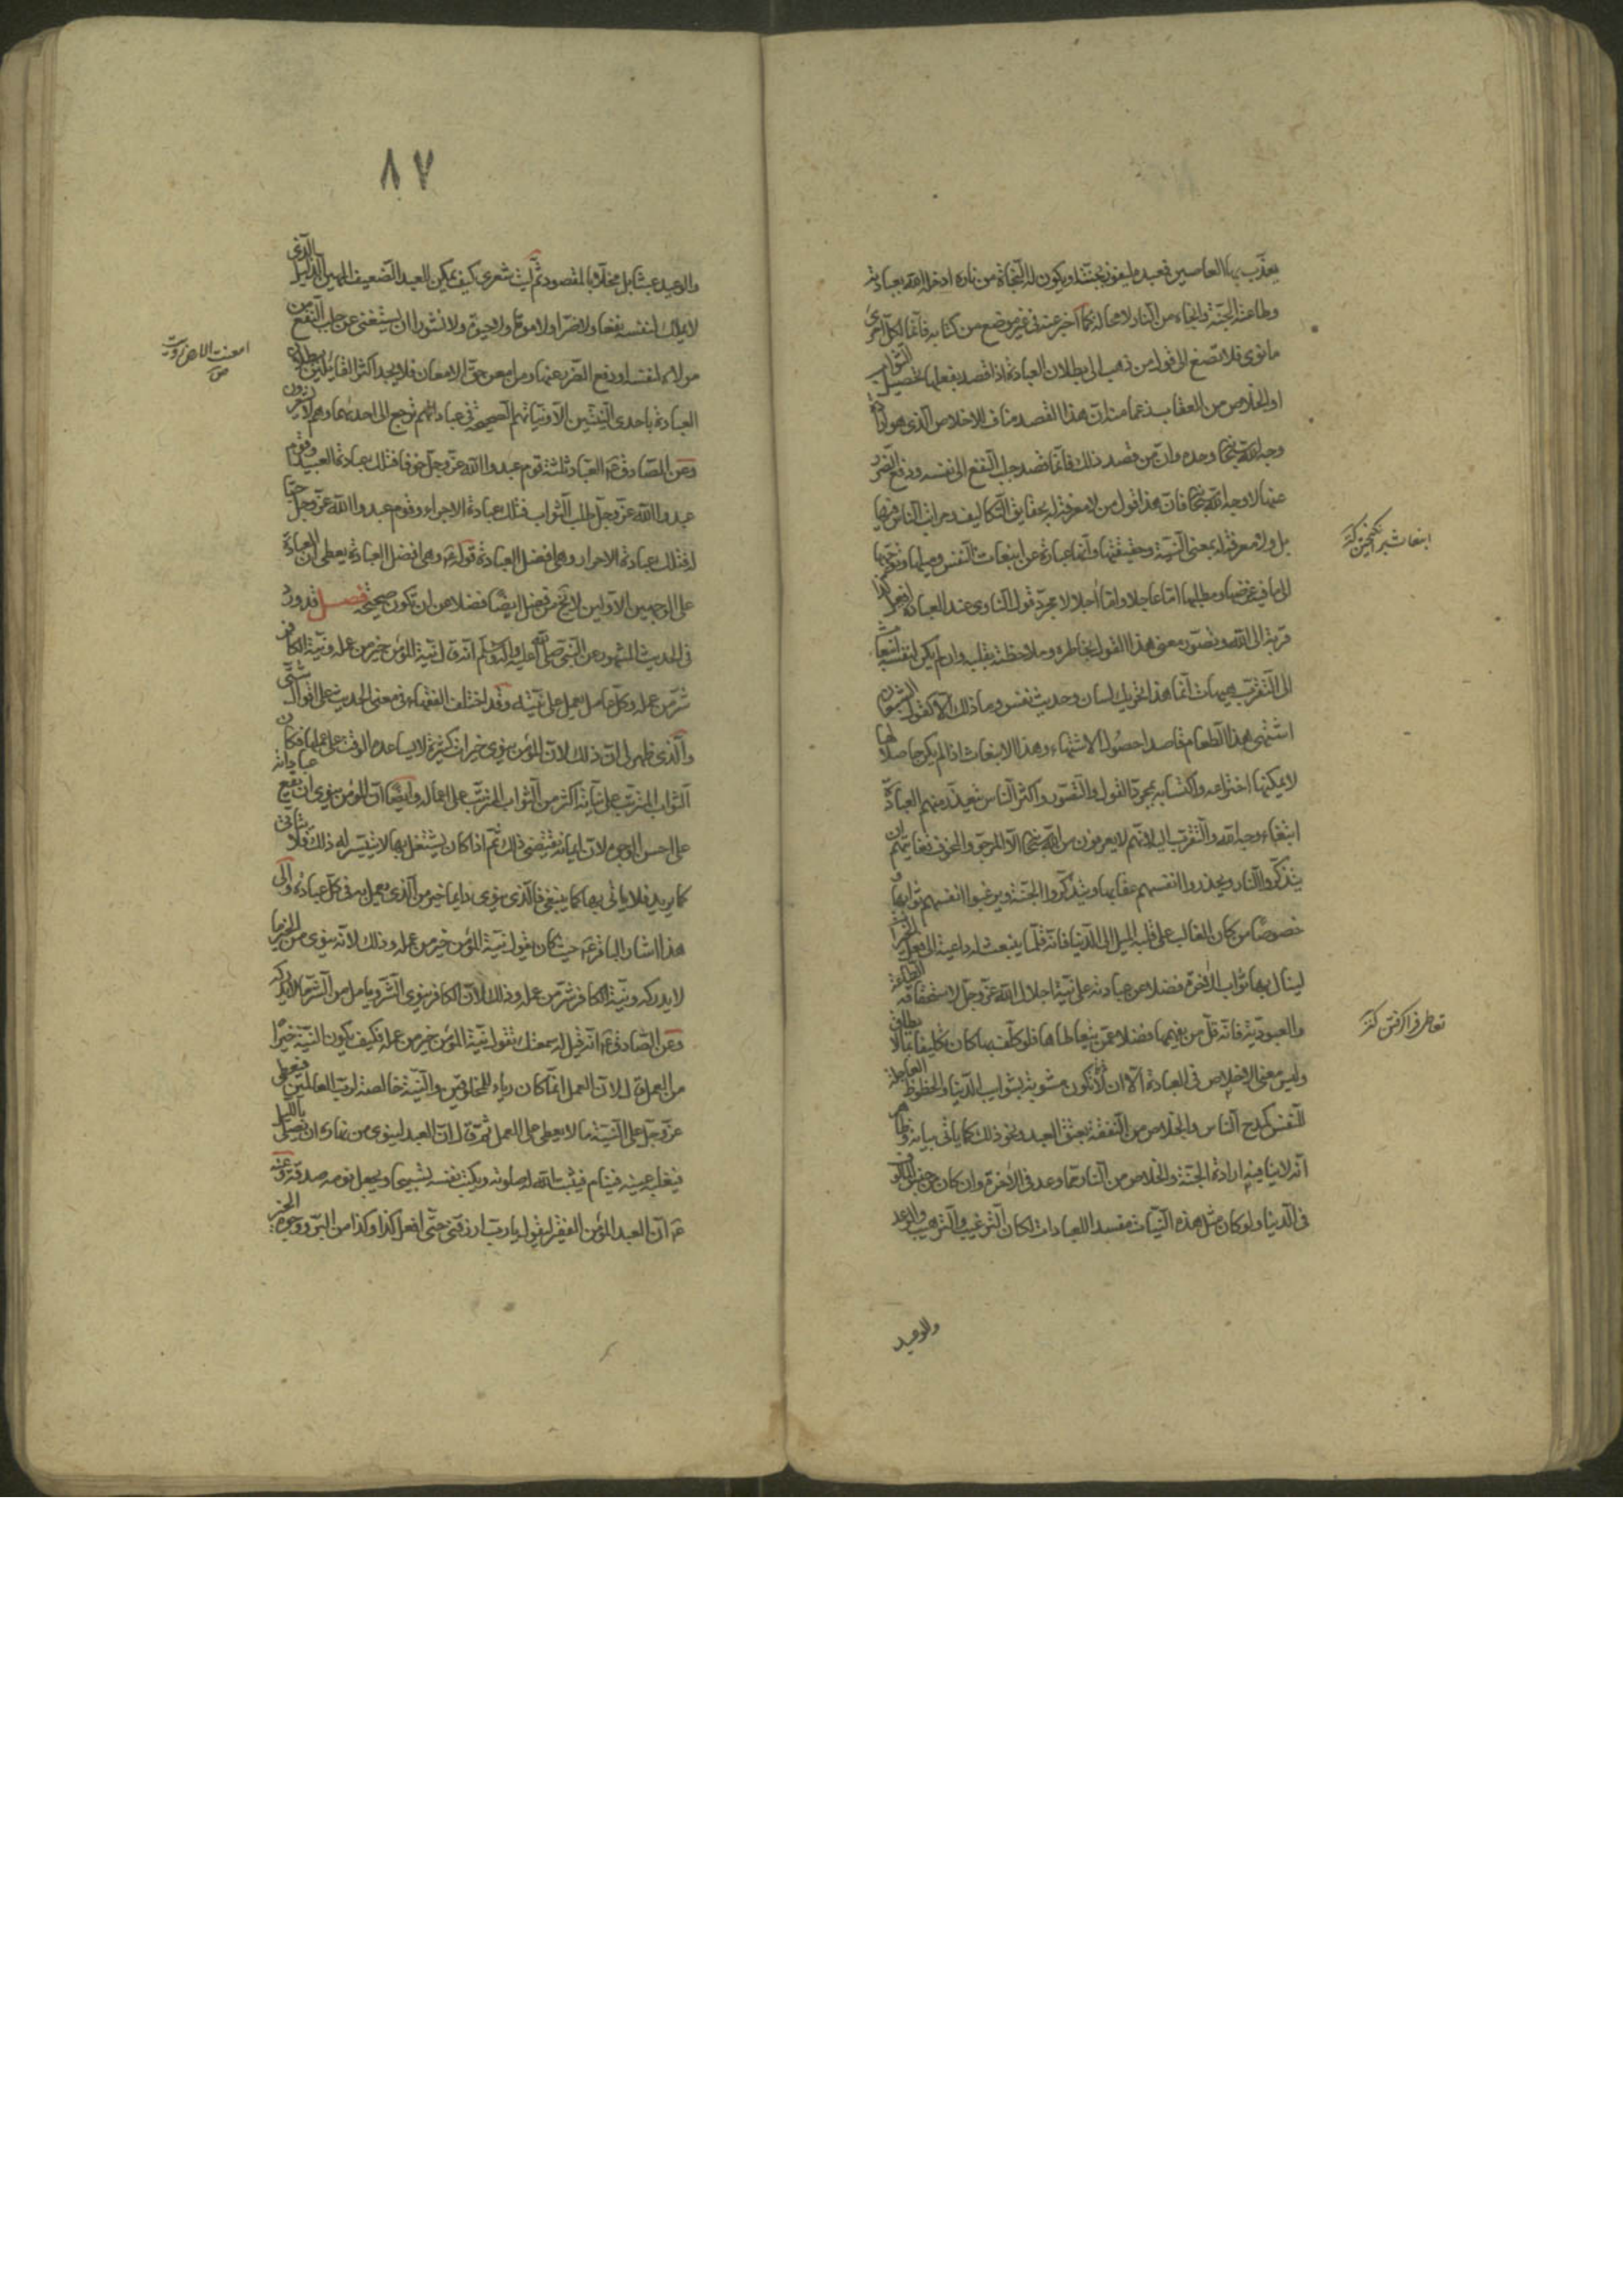 يعذّب بها العاصين فعبده ليفوز بجنته او يكون له النجاة من ناره ادخله الله بعبادته
وطاعته الجنّة وانجاه من النار لا محالة كما اخبر عنه في غير موضع من كتابه فانّما لكلّ امرئ
ما نوى فلا تصغ الى قول من ذهب الى بطلان العبادة اذا قصد بفعلها تحصيل الثواب
او الخلاص من العقاب زعما منه انّ هذا القصد مناف للاخلاص الذي هو ارادة
وجه الله سبحانه وحده وانّ من قصد ذلك فانّما قصد جلب النفع الى نفسه ودفع الضرر
عنها لا وجه الله سبحانه فانّ هذا قول من لا معرفة له بحقايق التكاليف ومراتب الناس فيها
بل ولا معرفة له بمعنى النيّة وحقيقتها وانّها عبارة عن انبعاث النفس وميلها وتوجّهها
الى ما فيه غرضها ومطلبها امّا عاجلا وامّا آجلا لا مجرّد قول الناوي عند العبادة افعل كذا
قربة الى الله وتصوّر معنى هذا القول بخاطره وملاحظته بقلبه وان لم يكن لنفسه انبعاث
الى التقرّب هيهات انّما هذا تحريك لسان وحديث نفس وما ذلك الّا كقول الشبعان
اشتهى هذا الطعام قاصدا حصول الاشتهاء وهذا الانبعاث اذا لم يكن حاصلا لها
لا يمكنها اختراعه واكتسابه بمجرّد القول والتصوّر واكثر الناس تتعذّر منهم العبادة
ابتغاء وجه الله والتقرّب اليه لانّهم لا يعرفون من الله سبحانه الّا المرجوّ والمخوف فغايتهم ان
يتذكّروا النار ويحذروا انفسهم عقابها ويتذكّروا الجنّة ويرغبوا انفسهم ثوابها و
خصوصا من كان الغالب على قلبه الميل الى الدنيا فانّه قلّما ينبعث له داعية الى فعل الخيرات
لينال بها ثواب الآخرة فضلا عن عبادته على نيّة اجلال الله عزّ وجلّ لاستحقاقه الطاعة
والعبوديّة فانّه قلّ من يفهمها فضلا عمّن يتعاطاها فلو كلّف بها كان تكليفا بما لا يطاق
وليس معنى الاخلاص في العبادة الّا ان لا تكون مشوبة بشوايب الدنيا والحظوظ العاجلة
للنفس كمدح الناس والخلاص من النفقة بعتق العبد ونحو ذلك كما ياتي بيانه وظاهر
انّه لا ينافيه ارادة الجنّة والخلاص من النار بما وعد في الآخرة وان كان من جنس المالوف
في الدنيا ولو كان مثل هذه النيّات مفسدا للعبادات لكان الترغيب والترهيب والوعد
والوعيد
تعاطى فرا گرفتن كنز
٨٧
والوعيد عبثا بل مخلّا بالمقصود ثمّ ليت شعري كيف يمكن للعبد الضعيف المهين الذليل الذي
لا يملك لنفسه نفعا ولا ضرّا ولا موتا ولا حيوة ولا نشورا ان يستغني عن جلب النفع من
مولاه لنفسه او دفع الضرر عنها ومن امعن حقّ الامعان فلا يجد اكثر القائلين ببطلان
العبادة باحدى النيّتين الّا ونيّاتهم الصحيحة في عباداتهم ترجع الى احديهما وهم لا يشعرون
وعن الصادق ع العبّاد ثلثة قوم عبدوا الله عزّ وجلّ خوفا فتلك عبادة العبيد وقوم
عبدوا الله عزّ وجلّ طلب الثواب فتلك عبادة الاجراء وقوم عبدوا الله عزّ وجلّ حبّا
له فتلك عبادة الاحرار وهي افضل العبادة قوله ع وهي افضل العبادة يعطي انّ العبادة
على الوجهين الاوّلين لا تخ من فضل ايضا فضلا من ان تكون صحيحة فصل قد ورد
في الحديث المشهور عن النبي صلى الله عليه وآله وسلّم انّه قال نيّة المؤمن خير من عمله ونيّة الكافر
شرّ من عمله وكلّ عامل يعمل على نيّته وقد اختلف الفقهاء في معنى الحديث على اقوال شتّى
والذي ظهر لي انّ ذلك لانّ المؤمن ينوي خيرات كثيرة لا يساعده الوقت على عملها فكان
الثواب المترتّب على نيّاته اكثر من الثواب المترتّب على اعماله وايضا انّ المؤمن ينوي ان يقع عباداته
على احسن الوجوه لانّ ايمانه يقتضي ذلك ثمّ اذا كان يشتغل بها لا يتيسّر له ذلك ولا يتاتى
كما يريد فلا ياتي بها كما ينبغي فالذي ينوي دايما خير من الذي يعمل به في كلّ عبادة والى
هذا اشار الباقر ع حيث كان يقول نيّة المؤمن خير من عمله وذلك لانّه ينوي من الخير ما
لا يدركه ونيّة الكافر شرّ من عمله وذلك لانّ الكافر ينوي الشرّ ويامل من الشرّ ما لا يدركه
وعن الصادق ع انّه قيل له سمعتك تقول نيّة المؤمن خير من عمله فكيف يكون النيّة خيرا
من العمل قال لانّ العمل انّما كان رياء للمخلوقين والنيّة خالصة لربّ العالمين فيعطي
عزّ وجلّ على النيّة ما لا يعطي على العمل ثمّ قال انّ العبد لينوي من نهاره ان يصلّي بالليل
فيغلبه عينه فينام فيثبت الله له صلوته ويكتب نفسه تسبيحا ويجعل نومه صدقة وعنه
ع انّ العبد المؤمن الفقير ليقول يا ربّ ارزقني حتّى افعل كذا وكذا من البرّ ووجوه الخير